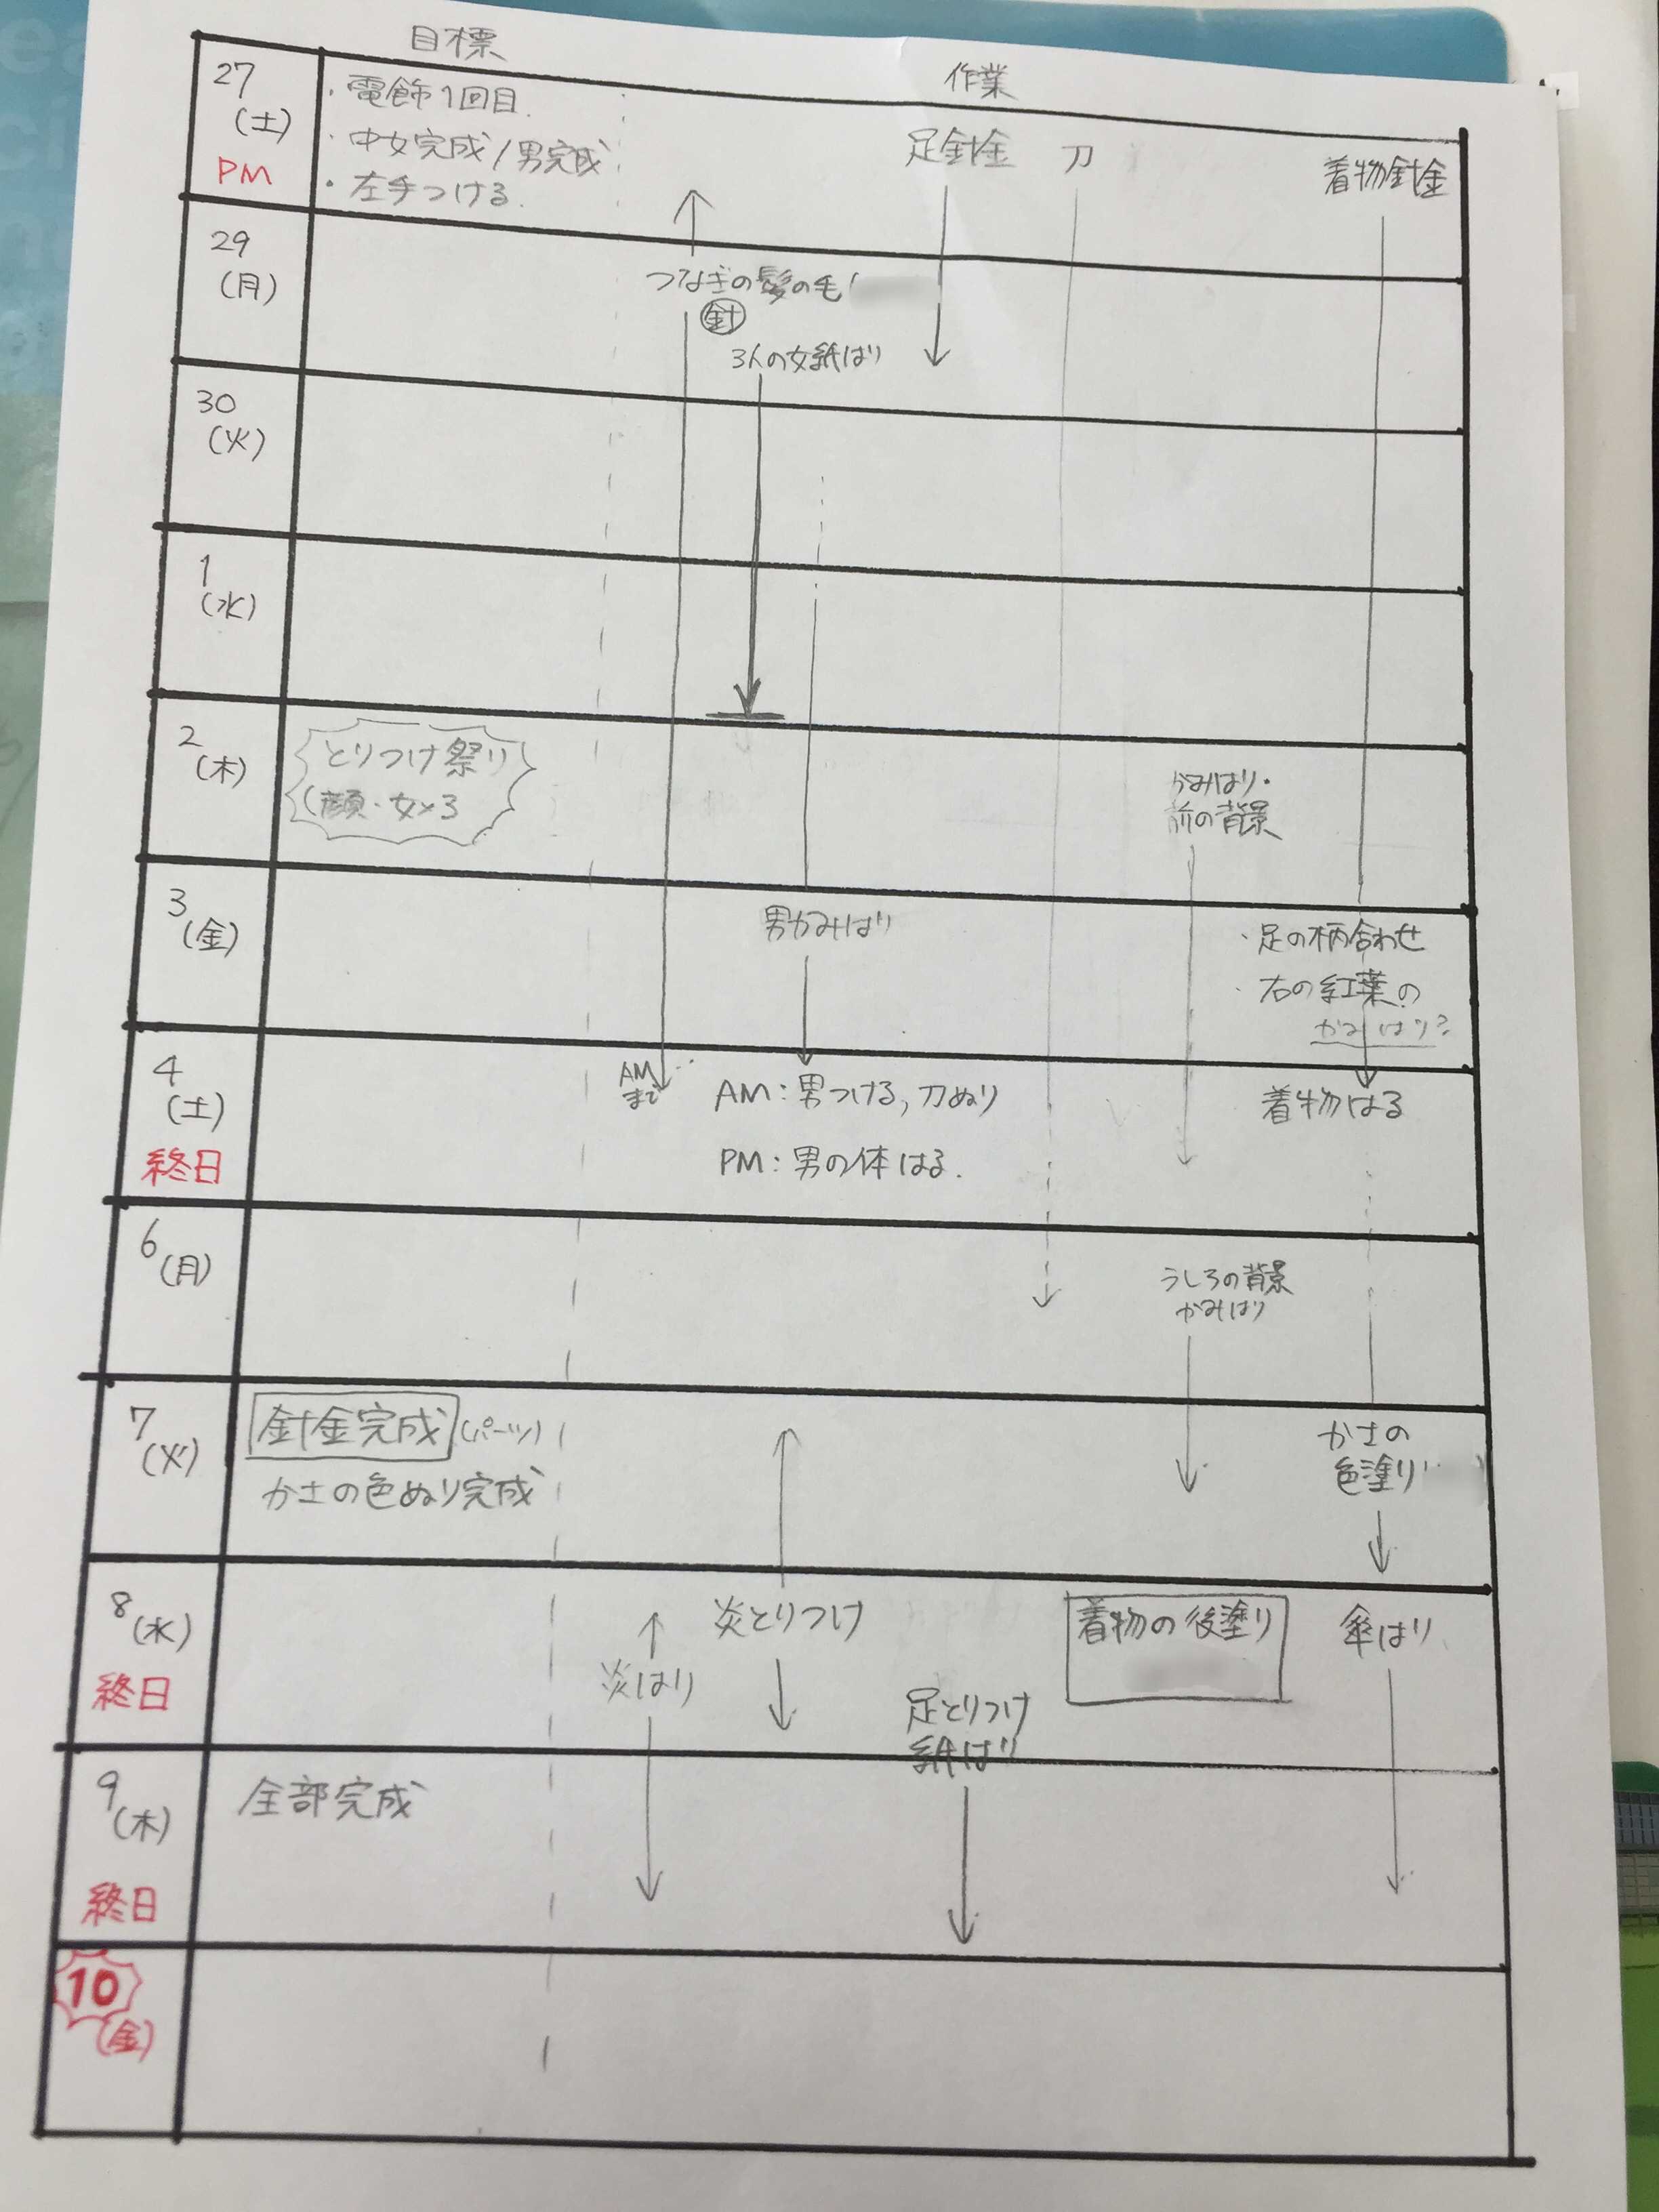 目標
作業
27
(土)
PM
・電飾1回目
・中女完成/男完成
・左手つける.
足針金
刀
着物針金
29
(月)
つなぎの髪の毛
針
3人の女紙はり
30
(火)
1
(水)
2
(木)
とりつけ祭り
(顔・女×3
かみはり・
前の背景
3
(金)
男かみはり
・足の柄合わせ
・右の紅葉の
かみはり?
4
(土)
終日
AM
まで
AM:男つける,刀ぬり
PM:男の体はる.
着物はる
6
(月)
うしろの背景
かみはり
7
(火)
針金完成(パーツ)
かさの色ぬり完成
かさの
色塗り
8
(水)
終日
炎とりつけ
炎はり
足とりつけ
紙はり
着物の後塗り
傘はり
9
(木)
終日
全部完成
10
(金)